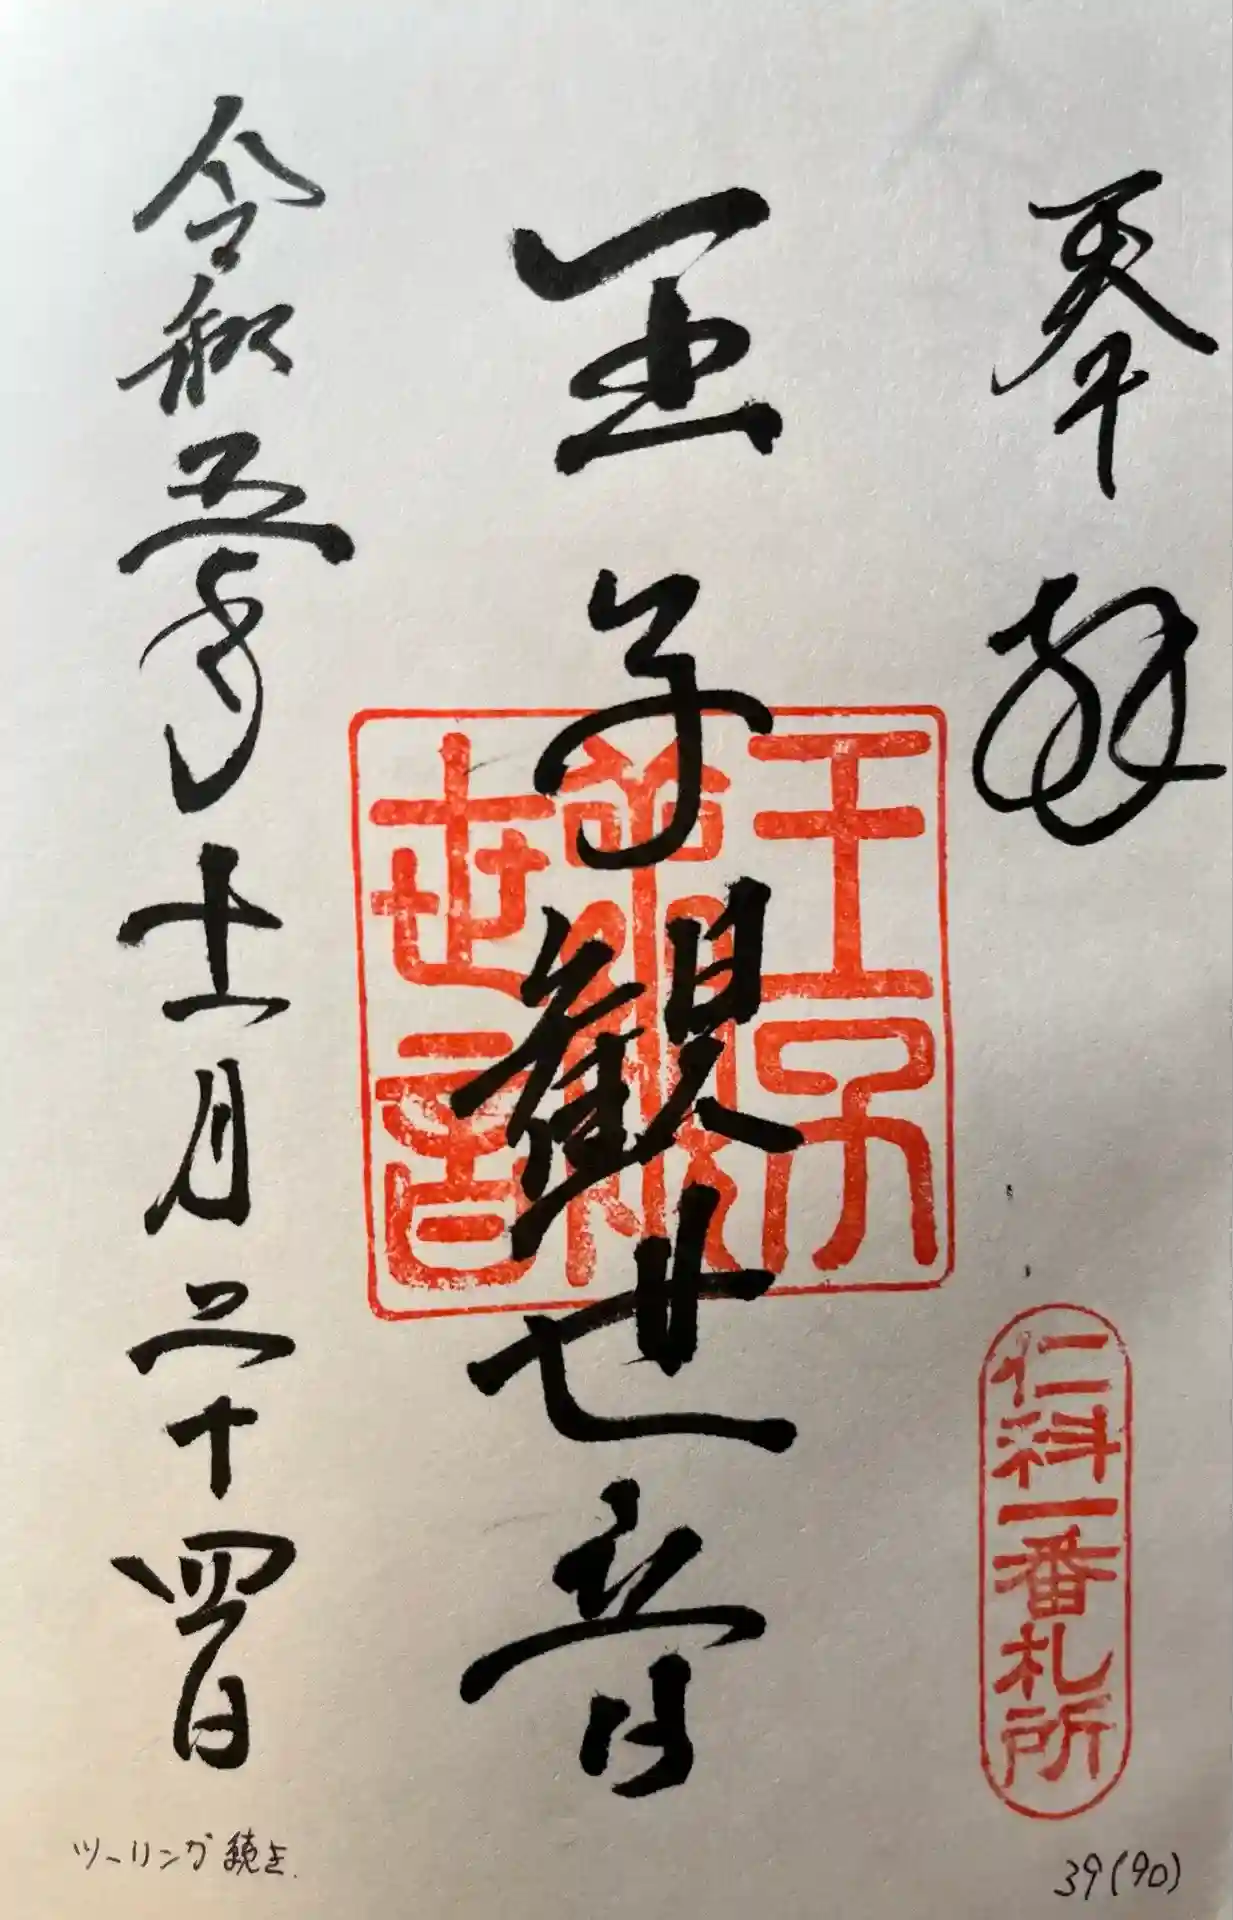 奉拝
仁科一番札所
王子観世音
王子
世音
令和五年十一月二十四日
ツーリング続き.
39(90)